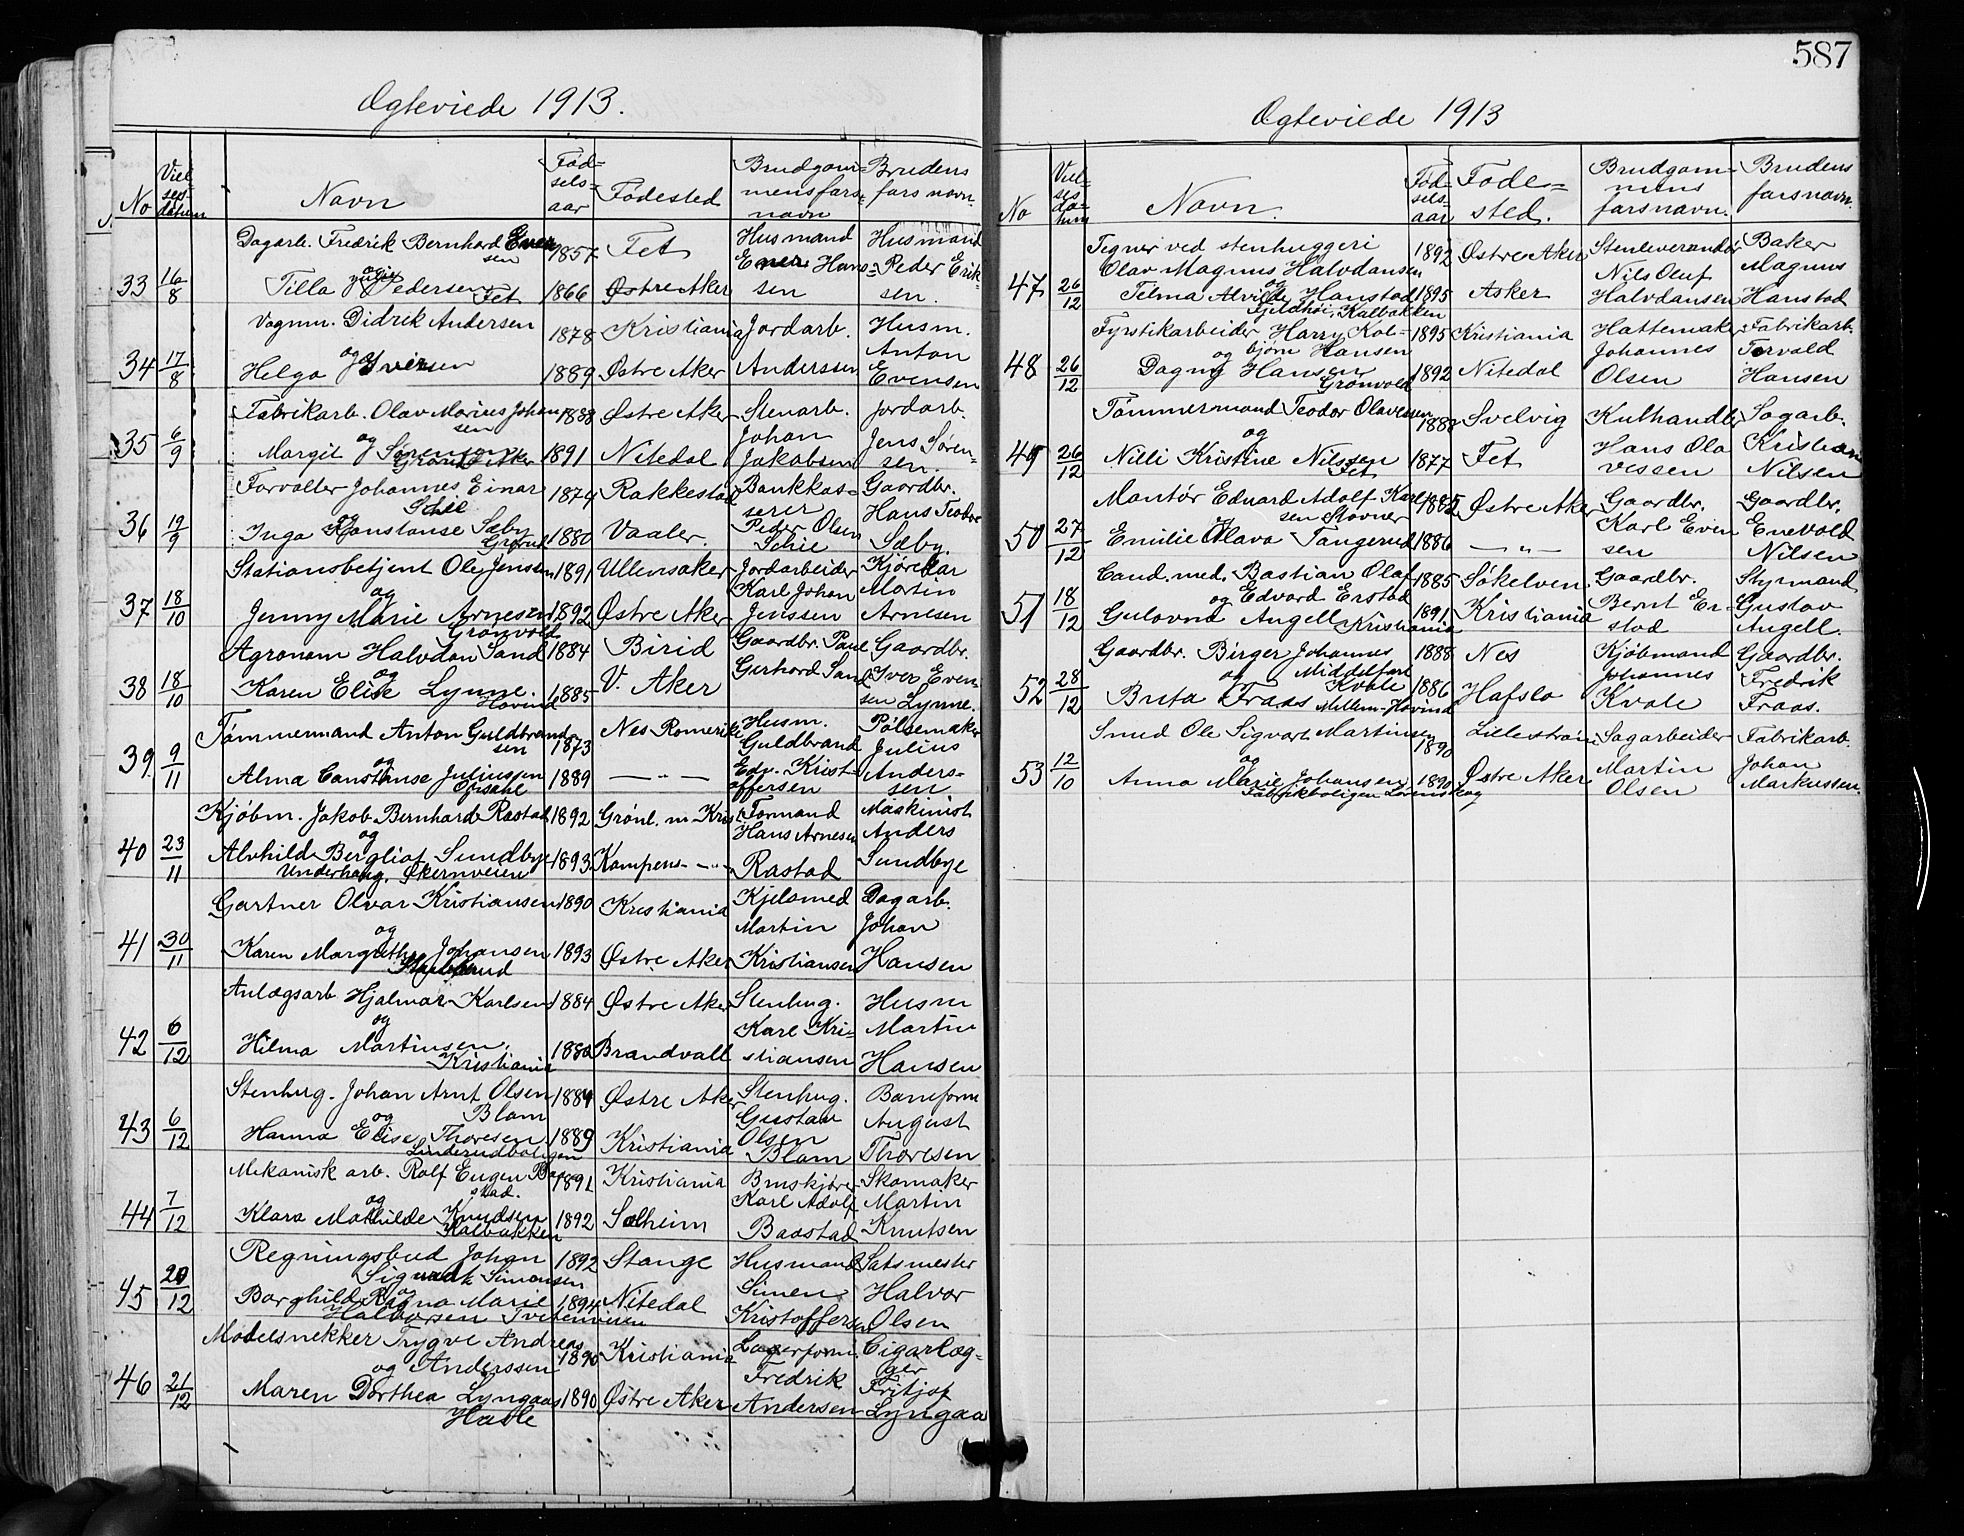 587
Ægteviede 1913.
No
Viel-
ses-
datum
Navn
Fød-
sels-
aar
Fødested
Brudgom-
mensfars-
navn
Brudens
farsnavn.
33 16/8
Dagarb. Fredrik Bernhard Even
sen
1857 Fet
Husmand
Even Hans-
sen
Husmand
Peder Erik-
sen.
og
Tilla Pedersen
Fet
1866 Østre Aker
34 17/8
Vognm. Didrek Andersen
1878 Kristiania
Jordarb.
Anderssen
Husm.
Anton
Evensen
og
Helga
1889 Østre Aker
35 6/9
Fabrikarb. Olav Marius Johan
sen
1888 Østre Aker
Stenarb.
Johan
Jakobsen
Jordarb.
Jens Søren-
sen.
og
Margit Sørensen
Grorud Aker
1891 Nitedal
36 19/9
Forvalter Johannes Einar
Schie
1874 Rakkestad
Bankkas-
serer
Peder Olsen
Schie
Gaardbr.
Hans Teodor
Sæby.
og
Inga Konstanse Sæby
Grorud
1880 Vaaler.
37 18/10
Stationsbetjent Ole Jensen
1891 Ullensaker
Jordarbeider
Karl Johan
Jenssen
Kjørekar
Martin
Arnesen
og
Jenny Marie Arnesen
Grønvold
1892 Østre Aker
38 18/10
Agronom Halvdan Sand
1884 Birid
Gaardbr. Paul
Gerhard Sand
Gaardbr.
Iver Even-
sen Lynne.
og
Karen Elise Lynne.
Hovind
1885 V. Aker
39. 9/11
Tømmermand Anton Guldbrand
sen
1873 Nes Romerike
Husm.
Guldbrand
Edv. Krist-
offersen
Pølsemaker
Julius
Anders-
sen
og
Alma Constanse Juliussen
Opsahl
1889 — " —
40 23/11
Kjøbm. Jakob Bernhard Rastad
1892 Grønl. m Krist
Formand
Hans Arnesen
Rastad
Maskinist
Anders
Sundbye
og
Alvhild Bergliot Sundbye
Underhaug. Økernveien
1893 Kampens — " —
41 30/11
Gartner Olvar Kristiansen
1890 Kristiania
Kjelsmed
Martin
Kristiansen
Dagarb.
Johan
Hansen
og
Karen Margrethe Johansen
1893 Østre Aker
42 6/12
Anlægsarb. Hjalmar Karlsen
1884 Østre Aker
Stenhug.
Karl Kri-
stiansen
Husm
Martin
Hansen
og
Hilma Martinsen.
Kristiania
1880 Brandvall
43 6/12
Stenhug. Johan Arnt Olsen
Blam
1884 Østre Aker
Stenhug.
Gustav
Olsen
Blam
Baneform
August
Thoresen
og
Hanna Elise Thoresen
Linderudboligen
1889 Kristiania
44 7/12
Mekanisk arb. Rolf Eugen Baa
stad.
1891 Kristiania
Bruskjører
Karl Adolf
Baastad
Skomaker
Martin
Knutsen
og
Klara Mathilde Knudsen
Kalbakken
1892 Solheim
45 20/12
Regningsbud Johan
Sigvart Simonsen
1892 Stange
Husmand
Simen
Kristoffersen
Satsmester
Halvor
Olsen
og
Borghild Ragna Marie
Halvorsen Tvetenveien
1894 Nitedal
46 21/12
Modelsnekker Trygve Andreas
Anderssen
1890 Kristiania
Lagerform.
Fredrik
Andersen
Cigarlæg-
ger
Fritjof
Lyngaa
og
Maren Dorthea Lyngaas
Hasle
1890 Østre Aker
Ægteviede 1913
No
Viel-
ses
da-
tum
Navn.
Fød-
sels-
aar
Føde-
sted.
Brudgom-
mens
farsnavn.
Brudens
farsnavn.
47 26/12
Tegner ved stenhuggeri
Olav Magnus Halvdansen
1892 Østre Aker
Stenleverandør
Nils Oluf
Halvdansen
Baker
Magnus
Hanstad
og
Telma Alvilde Hanstad
Fjeldhøi, Kalbakken
1895 Asker
48 26/12
Fyrstikarbeider Harry Kol-
bjørn Hansen
1895 Kristiania
Hattemaker
Johannes
Olsen
Fabrikarb.
Torvald
Hansen
og
Dagny Hansen
Grønvold
1892 Nitedal
49 26/12
Tømmermand Teodor Olavessen
1888 Svelvig
Kulhandler
Hans Ola
vessen
Sagarb.
Kristian
Nilsen
og
Nilli Kristine Nilssen
Fet
1877 Fet
50 27/12
Montør Edvard Adolf Karl
sen Stovner
1885 Østre Aker
Gaardbr.
Karl Even
sen
Gaardbr.
Enevold
Nilsen
og
Emilie Olava Tangerud
1886 — " —
51 18/12
Cand. med. Bastian Olaf
Edvard Erstad
1885 Søkelven.
Gaardbr.
Bernt Er-
stad
Styrmand
Gustav
Angell.
og
Gulovnd Angell Kristiania
1891 Kristiania
52 28/12
Gaardbr. Birger Johannes
Middelfart
Kvale
1888 Nes
Kjøbmand
Johannes
Kvale
Gaardbr.
Fredrik
Fraas.
og
Brita Fraas Mellem-Hovind
1886 Hafslo
53 12/10
Smed Ole Sigvart Martinsen
1890 Lillestrøm
Sagarbeider
Martin
Olsen
Fabrikarb.
Johan
Markussen.
og
Anna Marie Johansen
Fabrikboligen Lørenskog
1890 Østre Aker